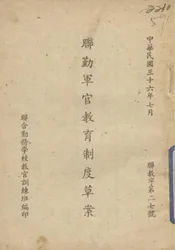 中華民國三十六年七月
聯教字第二七號
聯勤軍官教育制度草案
聯合勤務學校教官訓練班編印